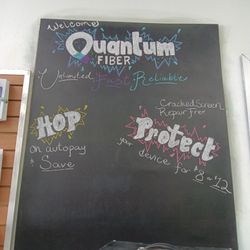 Welcome
Quantum
FIBER
Unlimited Fast Reliable
HOP
on autopay
Save
Cracked Screen
Repair free
Protect
your device for $8 or $12